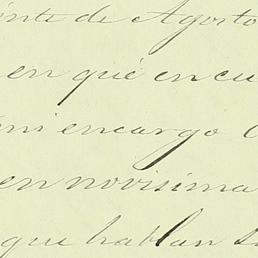 de Agosto
en qué en cu
mi encargo
en novisima
que hablan